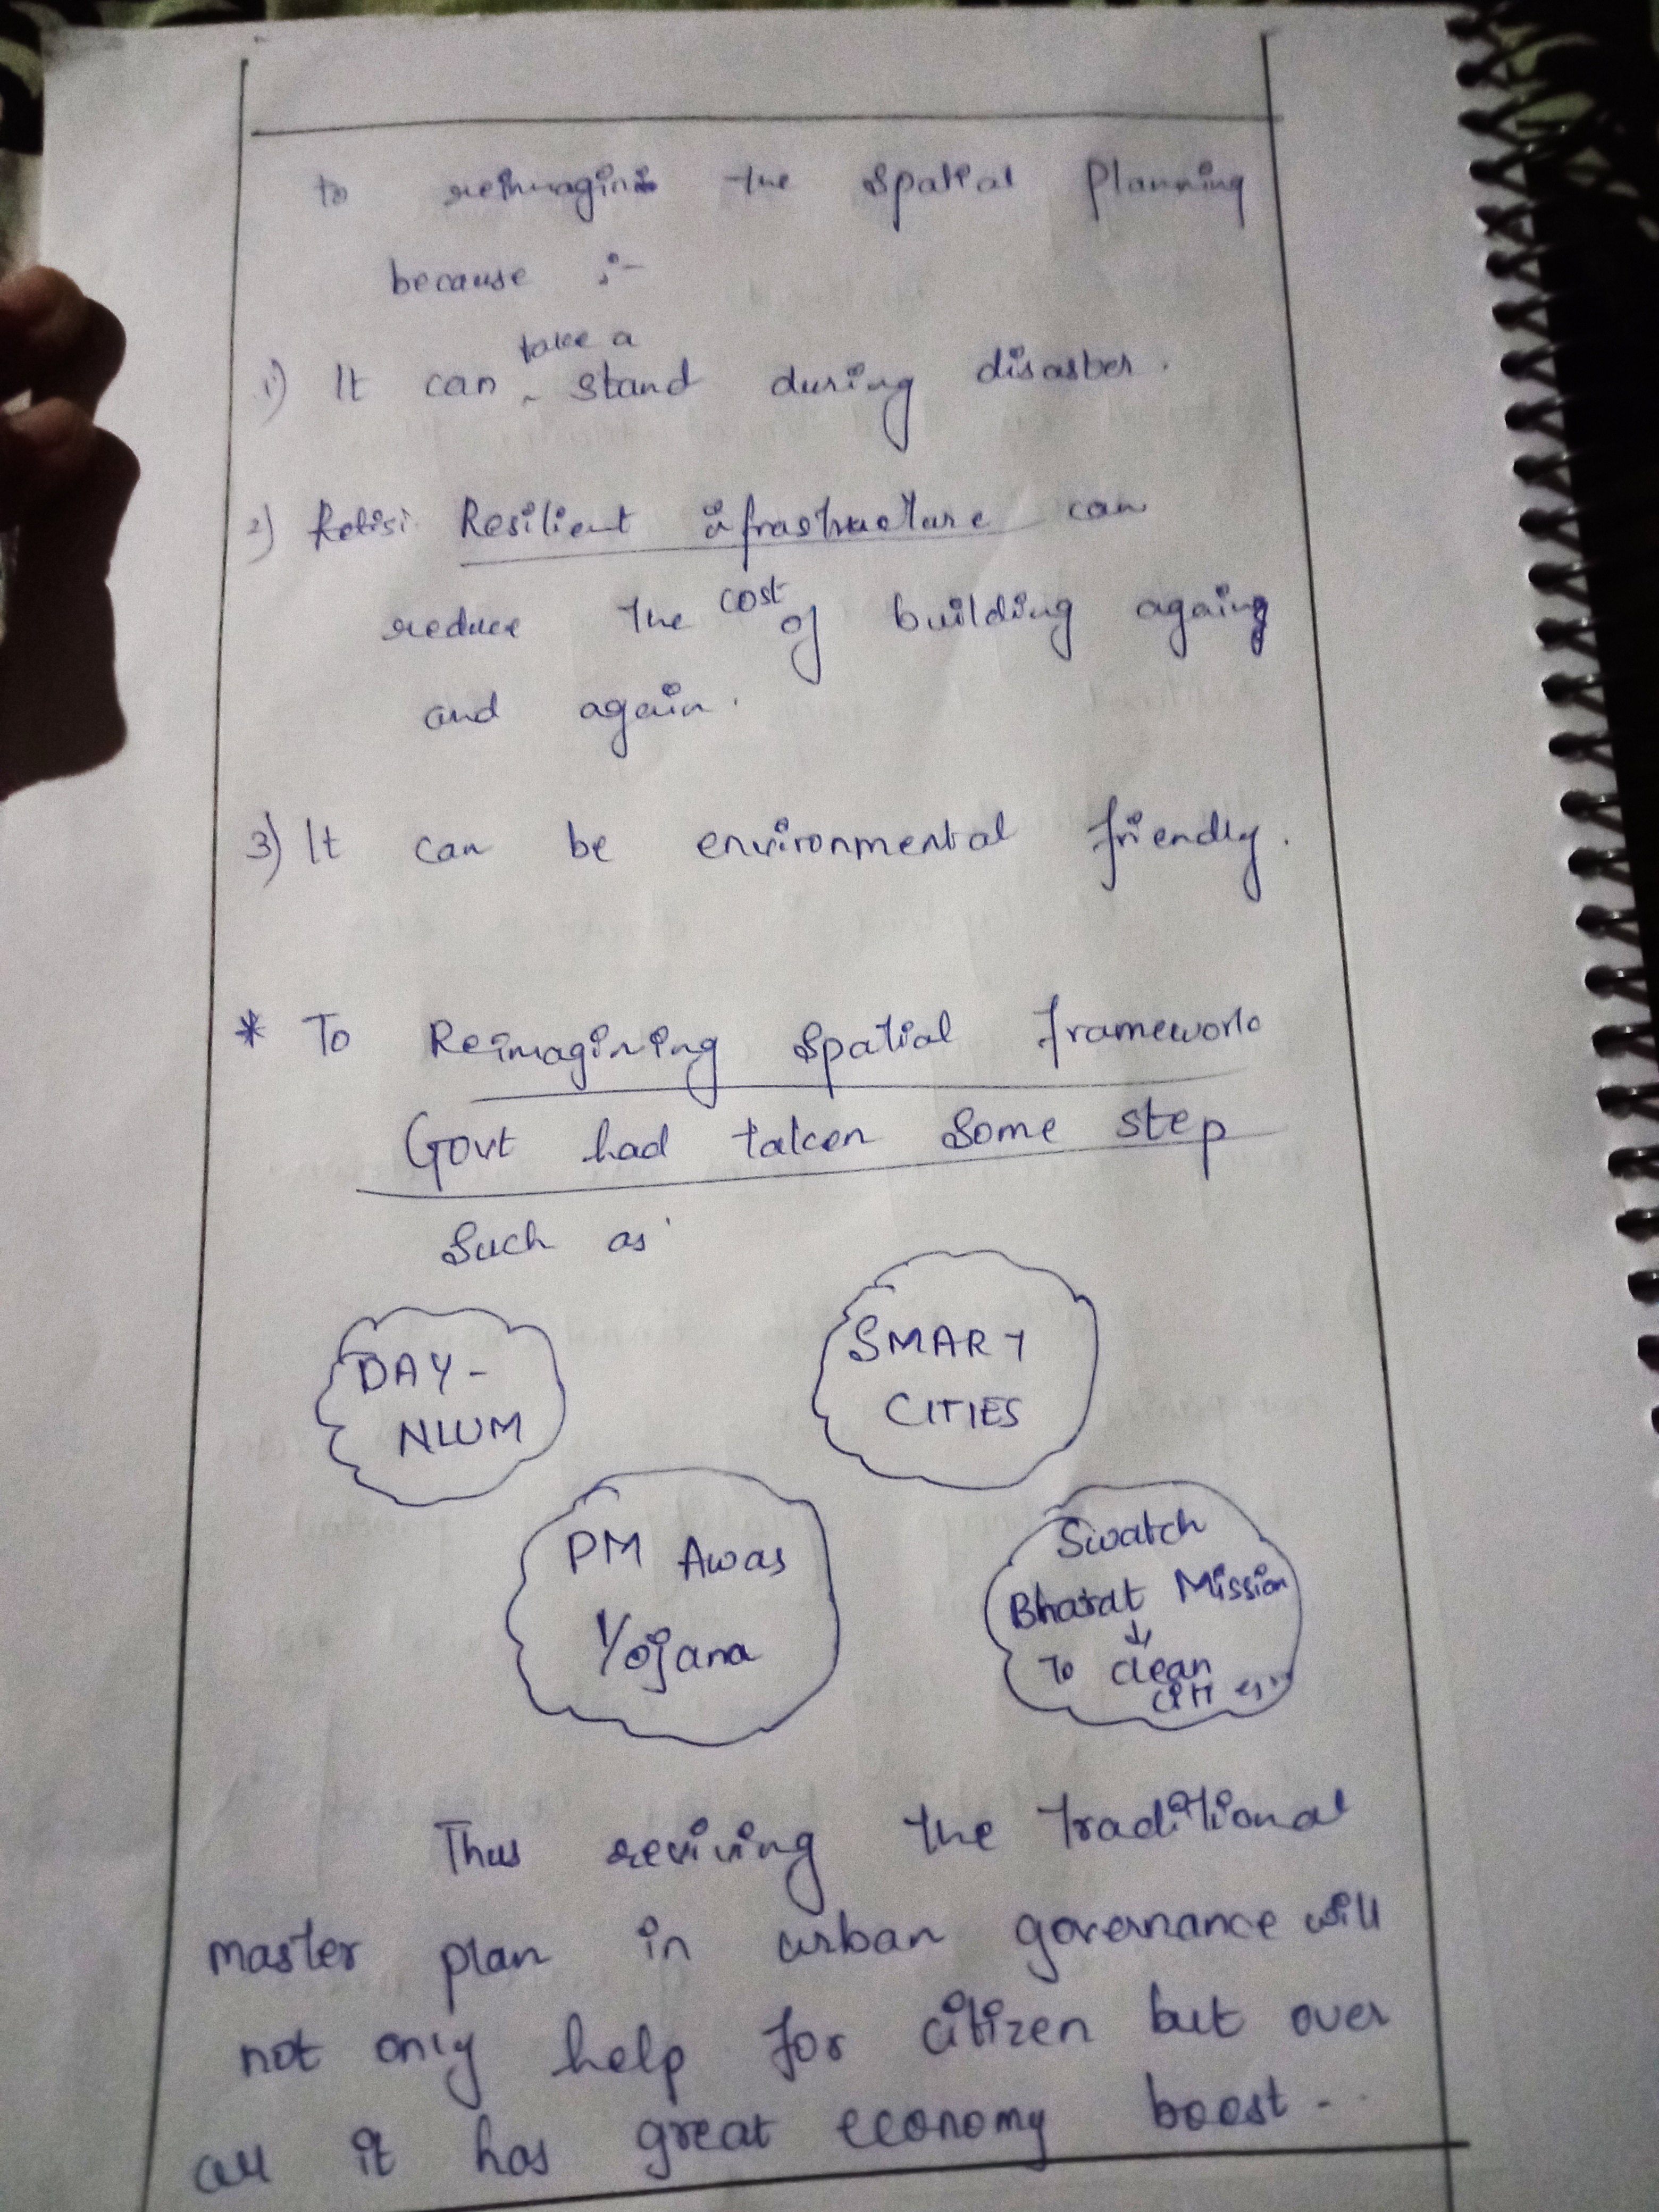 to reimagine the spatial Planning
because :-
1) It can take a stand during disaster.
2) Resilient infrastructure can
reduce the cost of building again
and again.
3) It can be environmental friendly.
* To Reimagining spatial framework
Govt had taken some step
Such as
DAY-
NLUM
SMART
CITIES
PM Awas
Yojana
Swatch
Bharat Mission
↓
To clean
Thus reviving the traditional
master plan in urban governance will
not only help for citizen but over
all it has great economy boost...